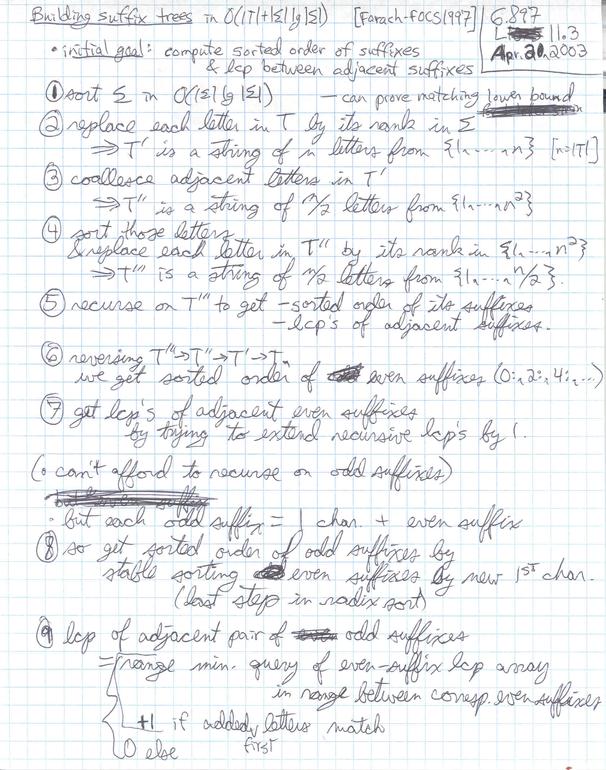 Building suffix trees in O(|T|+|Σ| lg |Σ|) [Farach-FOCS 1997]
6.897
L 11.3
Apr. 20, 2003
• initial goal: compute sorted order of suffixes
& lcp between adjacent suffixes
① sort Σ in O(|Σ| lg |Σ|) — can prove matching lower bound
② replace each letter in T by its rank in Σ
⇒ T' is a string of n letters from {1,...,n} [n=|T|]
③ coallesce adjacent letters in T'
⇒ T'' is a string of n/2 letters from {1,...,n²}
④ sort those letters
& replace each letter in T'' by its rank in {1,...,n²}
⇒ T''' is a string of n/2 letters from {1,...,n/2}.
⑤ recurse on T''' to get - sorted order of its suffixes
- lcp's of adjacent suffixes.
⑥ reversing T'''→T''→T'→T,
we get sorted order of even suffixes (0:, 2:, 4:, ...)
⑦ get lcp's of adjacent even suffixes
by trying to extend recursive lcp's by 1.
(• can't afford to recurse on odd suffixes)
• but each odd suffix = 1 char. + even suffix
⑧ so get sorted order of odd suffixes by
stable sorting even suffixes by new 1ST char.
(last step in radix sort)
⑨ lcp of adjacent pair of odd suffixes
= { range min. query of even-suffix lcp array
in range between corresp. even suffixes
+1 if added letters match
first
0 else